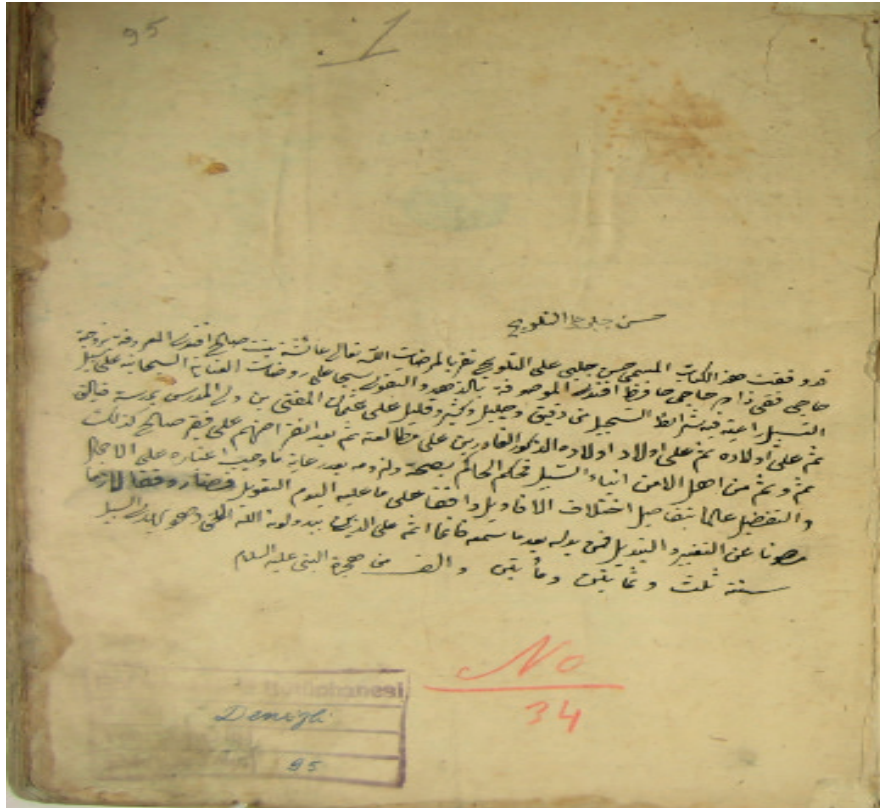 95
1
حسن چلبى على التلويح
قد وقفت هذا الكتاب المسمى حسن چلبى على التلويح تقربا لمرضات الله تعالى عائشة بنت صالح افندى المعروفة بزوجة
حاجى حافظ افندى الموصوفة بالزهد والتقوى على روضات
التسجيل من دقيق وجليل وكثير وقليل على عثمان المفتى بن ولى المدرس بمدرسة
ثم على اولاده ثم على اولاد اولاده الذكور القادرين على مطالعته ثم بعد انقراضهم على فقير صالح كذلك
ثم وثم من اهل الامن ابناء السبيل بحكم الحاكم بصحته ولزومه بعد رعاية ما وجب اعتباره على الاجمال
والتفضيل عالما بتفاصيل اختلاف الاقاويل واقفا على ما عليه اليوم التعويل فصار وقفا لازما
مصونا عن التغيير والتبديل فمن بدله بعد ما سمعه فانما اثمه على الذين يبدلونه الله وهو يهدى السبيل
سنة ثلث وثمانين ومأتين والف من هجرة النبى عليه السلام
No
34
Kütüphanesi
Denizli
95